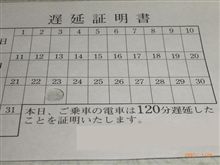 遅延証明書
1 2 3 4 5 6 7 8 9 10
日
11 12 13 14 15 16 17 18 19 20
21 22 23 24 25 26 27 28 29 30
31
本日、ご乗車の電車は120分遅延した
ことを証明いたします。